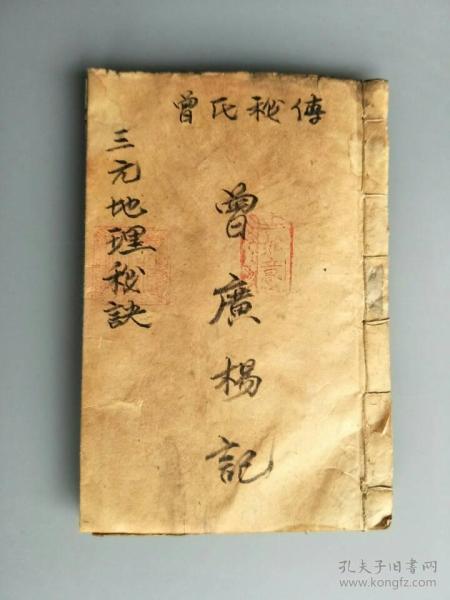 曾氏秘傳
曾廣楊記
三元地理秘訣
孔夫子旧书网
www.kongfz.com